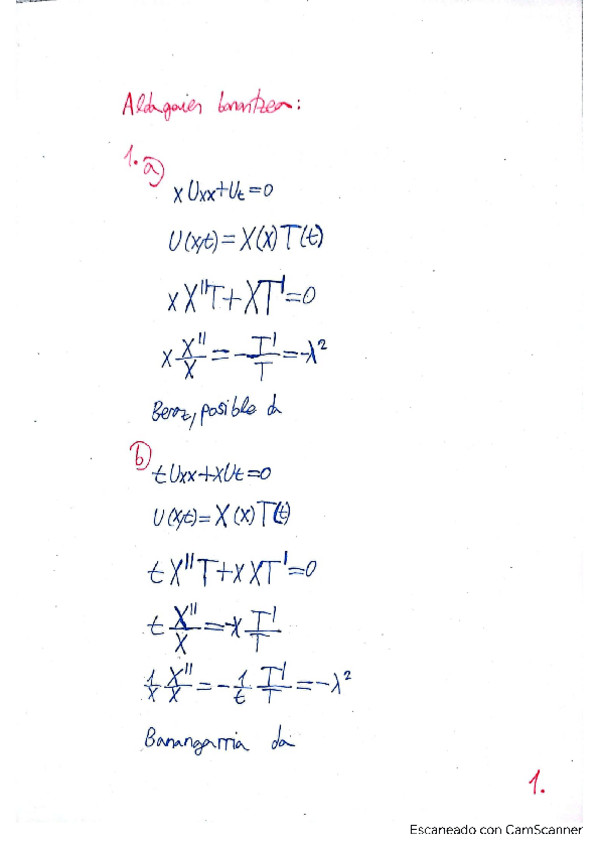 Aldagaien banantzea:
1. a)
x Uxx+Ut=0
U(x,t)=X(x)T(t)
xX''T+XT'=0
x X''/X = -T'/T = -λ²
Beraz, posible da
b)
tUxx+xUt=0
U(x,t)=X(x)T(t)
tX''T+xXT'=0
t X''/X = -x T'/T
1/x X''/X = -1/t T'/T = -λ²
Banangarria da
1.
Escaneado con CamScanner